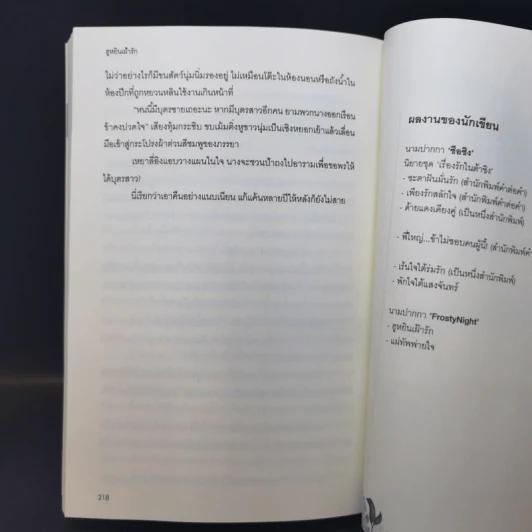 ฮูหยินเฝ้ารัก
ไม่ว่าอย่างไรก็มีขนสัตว์นุ่มนิ่มรองอยู่ ไม่เหมือนโต๊ะในห้องนอนหรือถังน้ำใน
ห้องปีกที่ถูกหยวนหลินใช้งานเกินหน้าที่
"หนนี้มีบุตรชายเถอะนะ หากมีบุตรสาวอีกคน ยามพวกนางออกเรือน
ข้าคงปวดใจ" เสียงทุ้มกระซิบ ขบเม้มติ่งหูขาวนุ่มเป็นเชิงหยอกเย้าแล้วเลื่อน
มือเข้าสู่กระโปรงผ้าต่วนสีชมพูของภรรยา
เหยาลี่อิงแอบวางแผนในใจ นางจะชวนป้าถงไปอารามเพื่อขอพรให้
ได้บุตรสาว!
นี่เรียกว่าเอาคืนอย่างแนบเนียน แก้แค้นหลายปีให้หลังก็ยังไม่สาย
218
ผลงานของนักเขียน
นามปากกา 'ซือซิง'
นิยายชุด 'เรื่องรักในต้าชิง'
- ชะตาฝันมั่นรัก (สำนักพิมพ์คำต่อคำ)
- เพียงรักสลักใจ (สำนักพิมพ์คำต่อคำ)
- ด้ายแดงเคียงคู่ (เป็นหนึ่งสำนักพิมพ์)
- พี่ใหญ่...ข้าไม่ชอบคนผู้นี้! (สำนักพิมพ์คำ
- เร้นใจใต้ร่มรัก (เป็นหนึ่งสำนักพิมพ์)
- พักใจใต้แสงจันทร์
นามปากกา 'FrostyNight'
- ฮูหยินเฝ้ารัก
- แม่ทัพพ่ายใจ